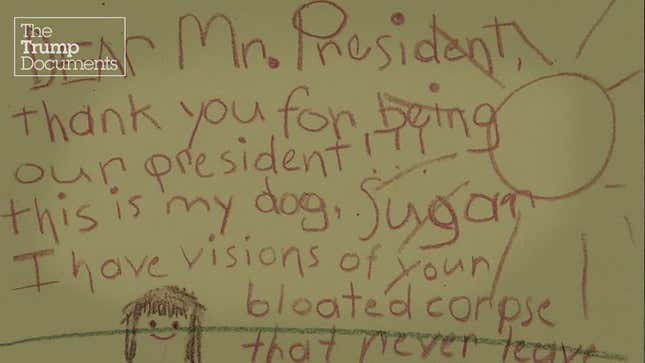 The
Trump
Documents
DEAR Mr. President,
thank you for being
our president!!!
this is my dog, Sugar
I have visions of your
bloated corpse
that never leave